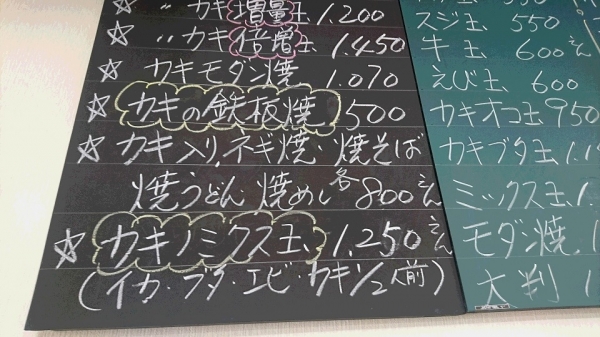 ☆ 〃カキ増量玉 1,200
☆ 〃カキ倍増玉 1,450
カキモダン焼 1,070
☆ カキの鉄板焼 500
☆ カキ入り、ネギ焼・焼そば
焼うどん 焼めし 各800えん
☆ カキノミクス玉 1,250えん
(イカ・ブタ・エビ・カキ1/2人前)
スジ玉 550
牛玉 600えん
えび玉 600
カキオコ玉 950
カキブタ玉 1,1
ミックス玉 1.
モダン焼 1
大判 1